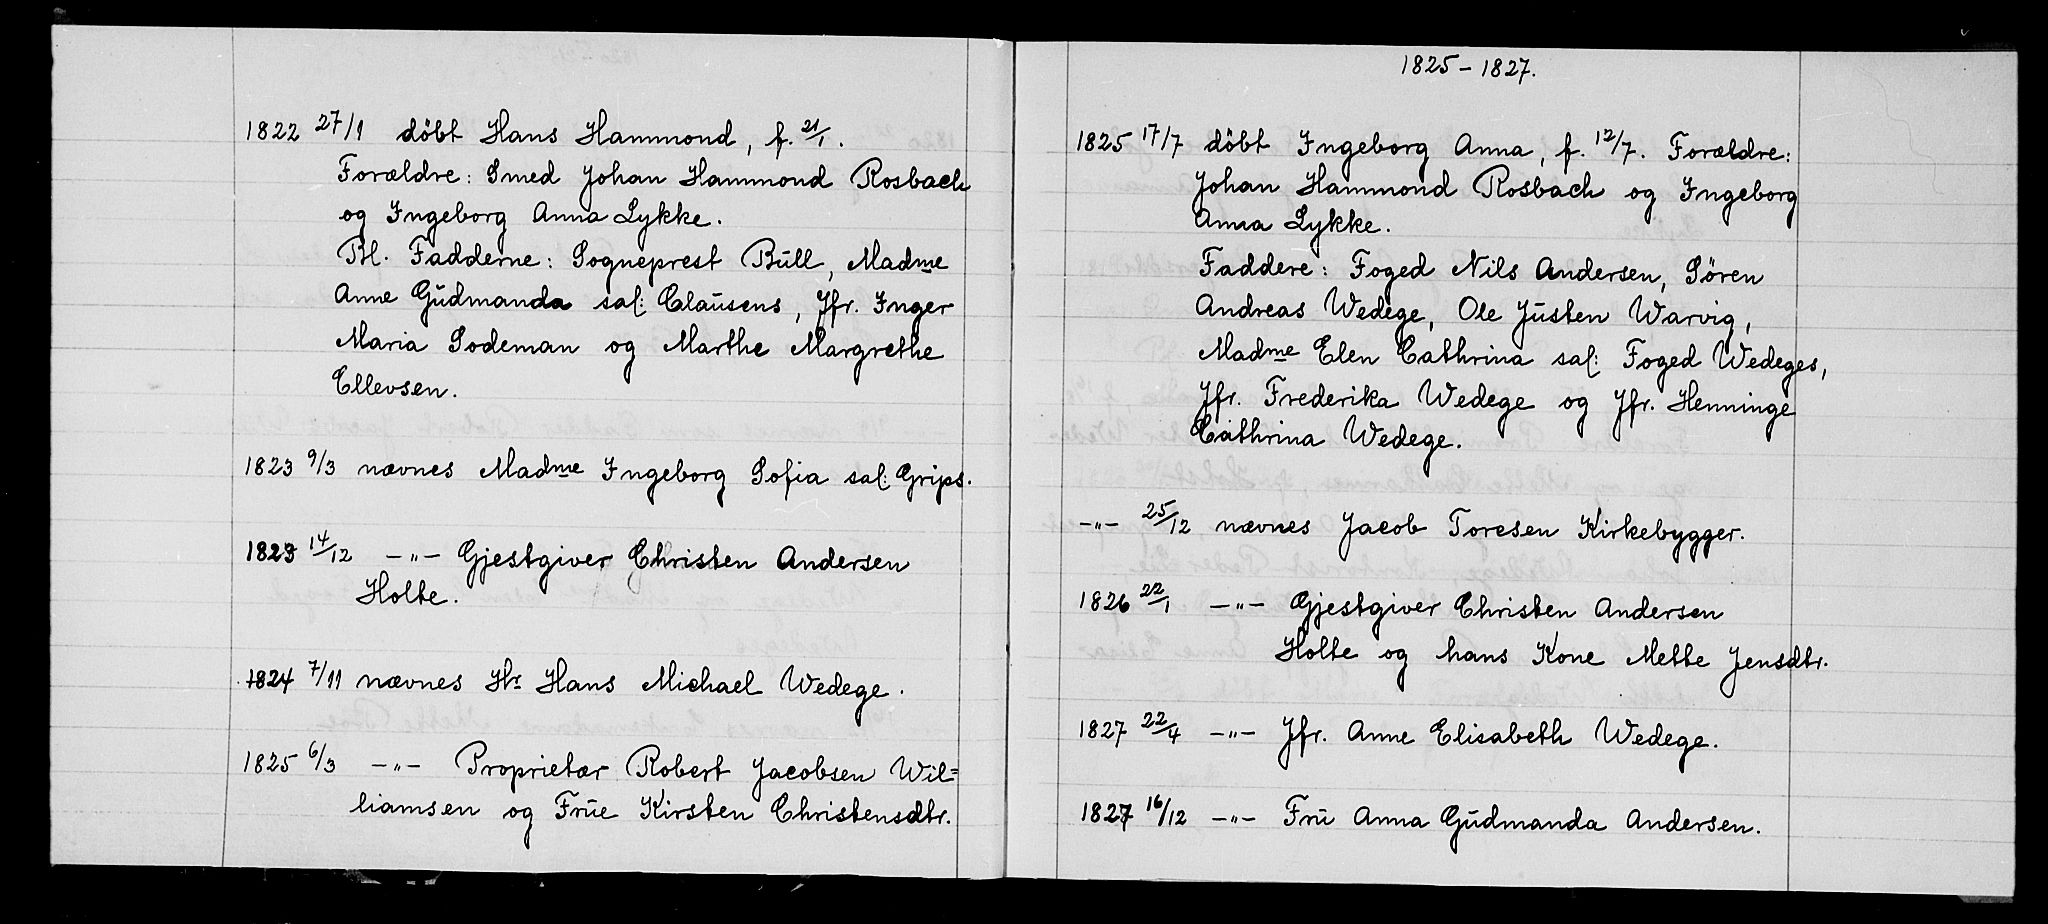 1822 27/1 döbt Hans Hammond, f. 21/1.
Forældre: Smed Johan Hammond Rosbach
og Ingeborg Anna Lykke.
Bl. Fadderne: Sogneprest Bull, Madme
Anne Gudmanda sal: Clausens, Jfr. Inger
Maria Sodeman og Marthe Margrethe
Ellevsen.
1823 9/3 nævnes Madme Ingeborg Sofia sal: Grips.
1823 14/12 -"- Gjestgiver Christen Andersen
Holte.
1824 7/11 nævnes Hr Hans Michael Wedege.
1825 6/3 -"- Proprietær Robert Jacobsen Wil=
liamsen og Frue Kirsten Christensdtr.
1825 - 1827.
1825 17/7 döbt Ingeborg Anna, f. 12/7. Forældre:
Johan Hammond Rosbach og Ingeborg
Anna Lykke.
Faddere: Foged Nils Andersen, Sören
Andreas Wedege, Ole Justen Warvig,
Madme Elen Cathrina sal: Foged Wedeges,
Jfr. Frederika Wedege og Jfr. Henninge
Cathrina Wedege.
-"- 25/12 nævnes Jacob Toresen Kirkebygger.
1826 22/1 -"- Gjestgiver Christen Andersen
Holte og hans Kone Mette Jensdtr.
1827 22/4 -"- Jfr. Anne Elisabeth Wedege.
1827 16/12 -"- Fru Anna Gudmanda Andersen.